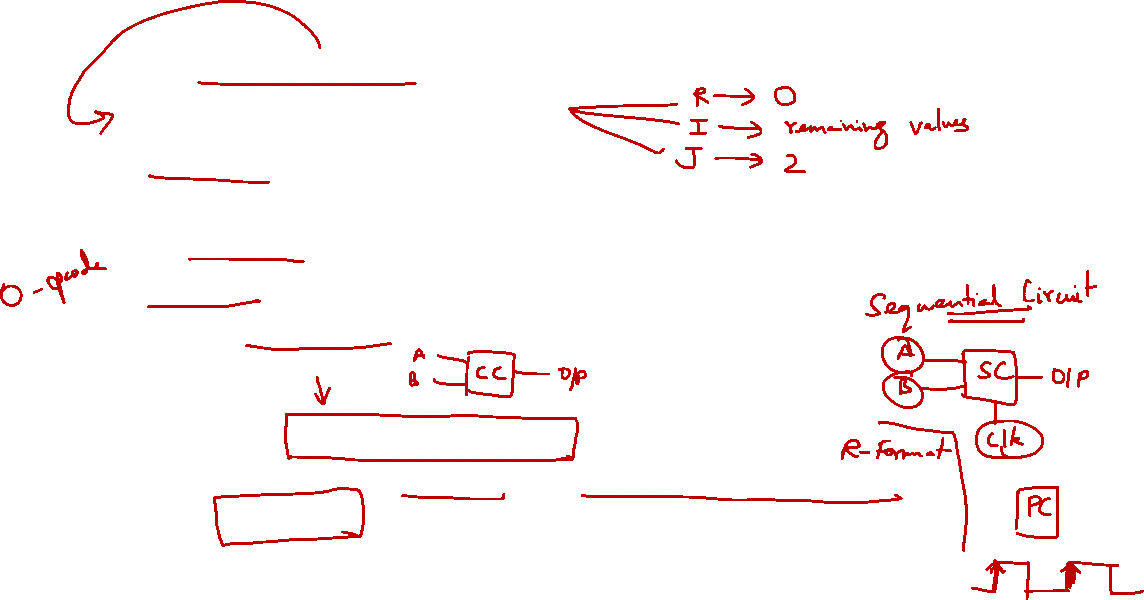 R → 0
I → remaining values
J → 2
0 - opcode
Sequential Circuit
A
B
CC
O/P
A
B
SC
O/P
Clk
R-Format
PC